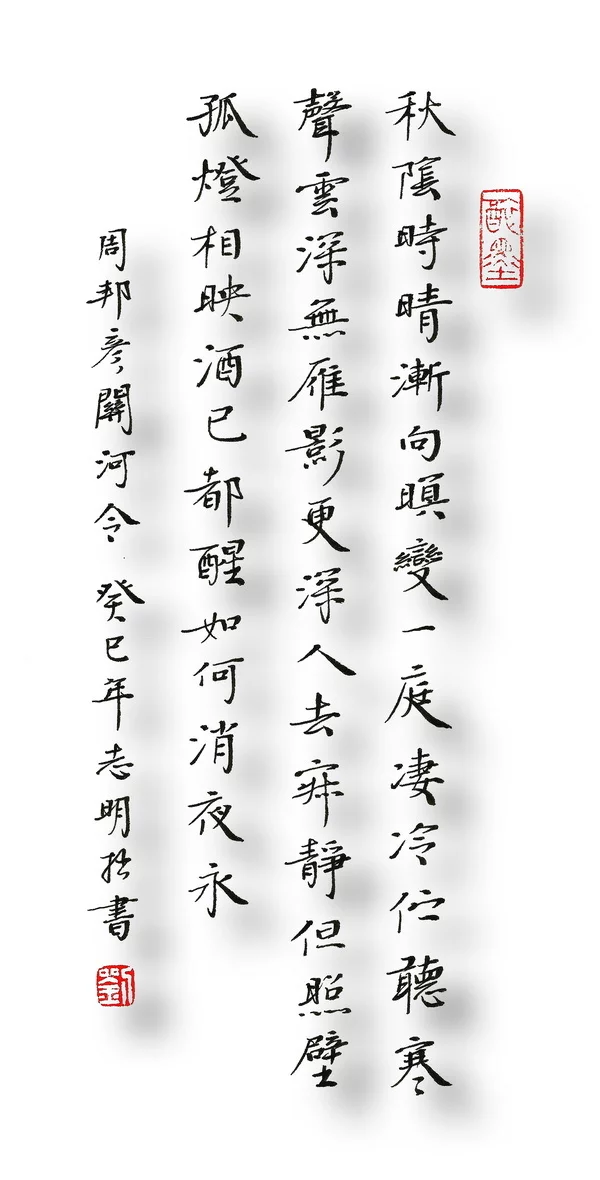 秋陰時晴漸向暝變一庭淒冷佇聽寒
聲雲深無雁影更深人去寂靜但照壁
孤燈相映酒已都醒如何消夜永
周邦彥關河令 癸巳年志明拙書
劉